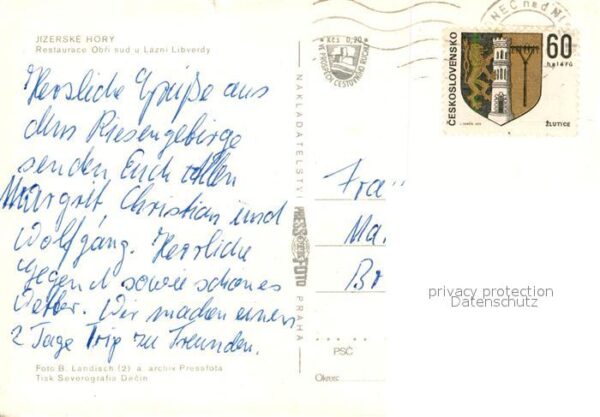 JIZERSKÉ HORY
Restaurace Obří sud u Lázní Libverdy
Herzliche Grüße aus
dem Riesengebirge
senden Euch allen
Margrit, Christian und
Wolfgang. Herrliche
Gegend sowie schönes
Wetter. Wir machen einen
2 Tage Trip zu Freunden.
Foto B. Landisch (2) a. archiv Pressfota
Tisk Severografia Děčín
Kčs 0,90
NAKLADATELSTVÍ
PRESSFOTO
PRAHA
NEC nad NI
ČESKOSLOVENSKO
60
haléřů
ŽLUTICE
Fra
Ma.
Br
privacy protection
Datenschutz
PSČ
Okres: